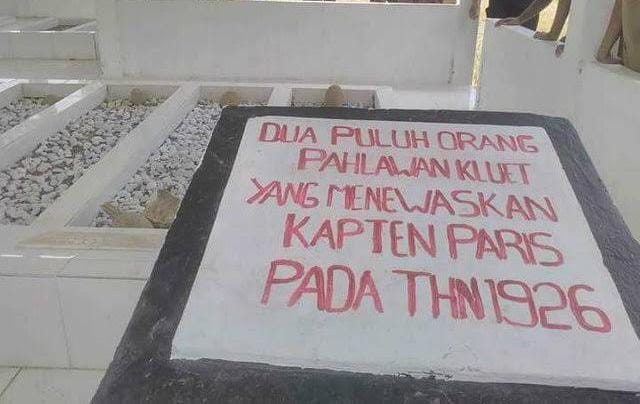 DUA PULUH ORANG
PAHLAWAN KLUET
YANG MENEWASKAN
KAPTEN PARIS
PADA THN 1926